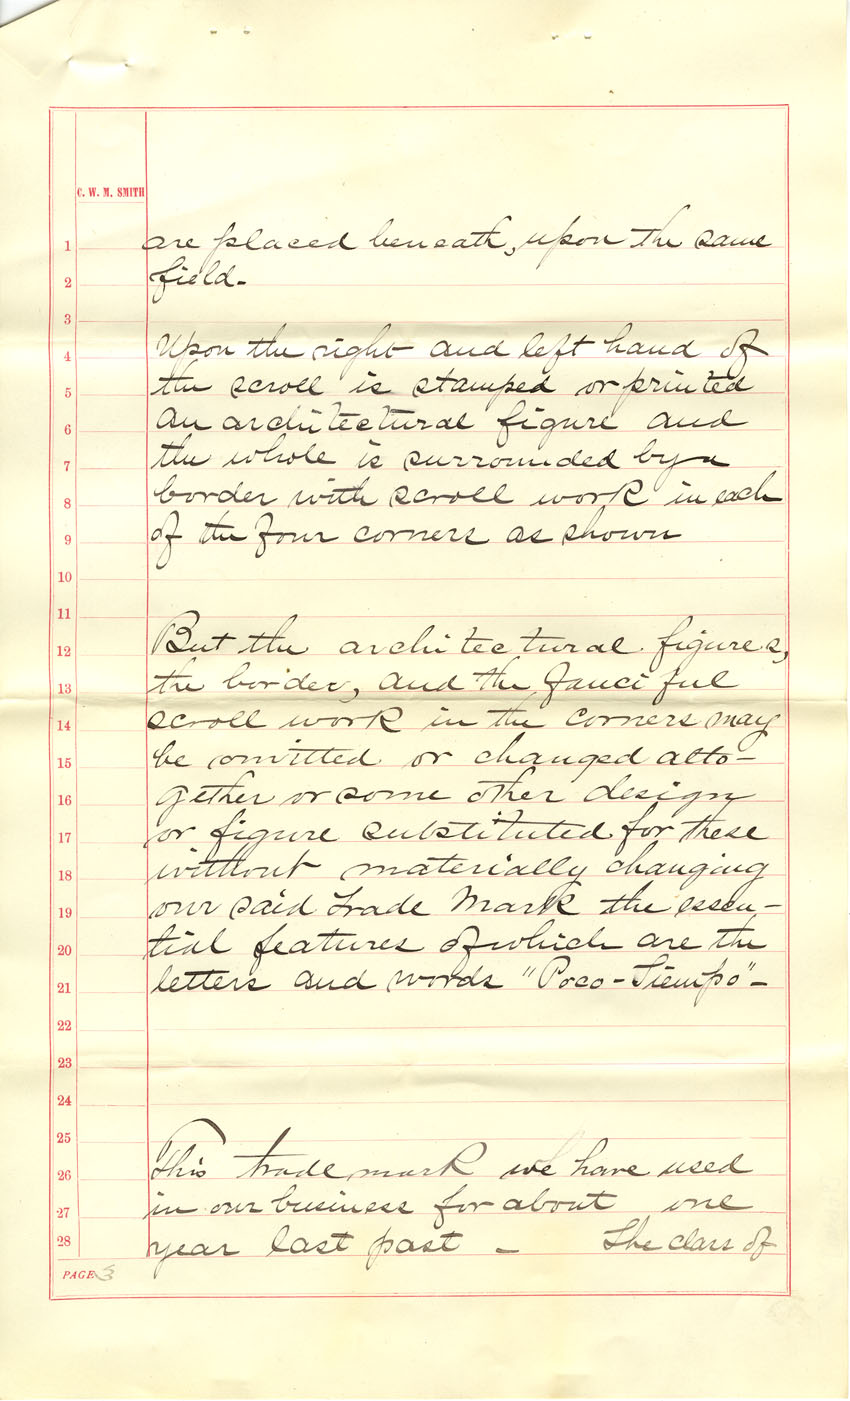 C. W. M. SMITH
1 are placed beneath, upon the same
2 field.
3
4 Upon the right and left hand of
5 the scroll is stamped or printed
6 an architectural figure and
7 the whole is surrounded by a
8 border with scroll work in each
9 of the four corners as shown
10
11
12 But the architectural figures,
13 the border, and the fanciful
14 scroll work in the corners may
15 be omitted or changed alto-
16 gether or some other design
17 or figure substituted for these
18 without materially changing
19 our said trade mark the essen-
20 tial features of which are the
21 letters and words "Poco-Tiempo"-
22
23
24
25
26 This trade mark we have used
27 in our business for about one
28 year last past - The class of
PAGE 3